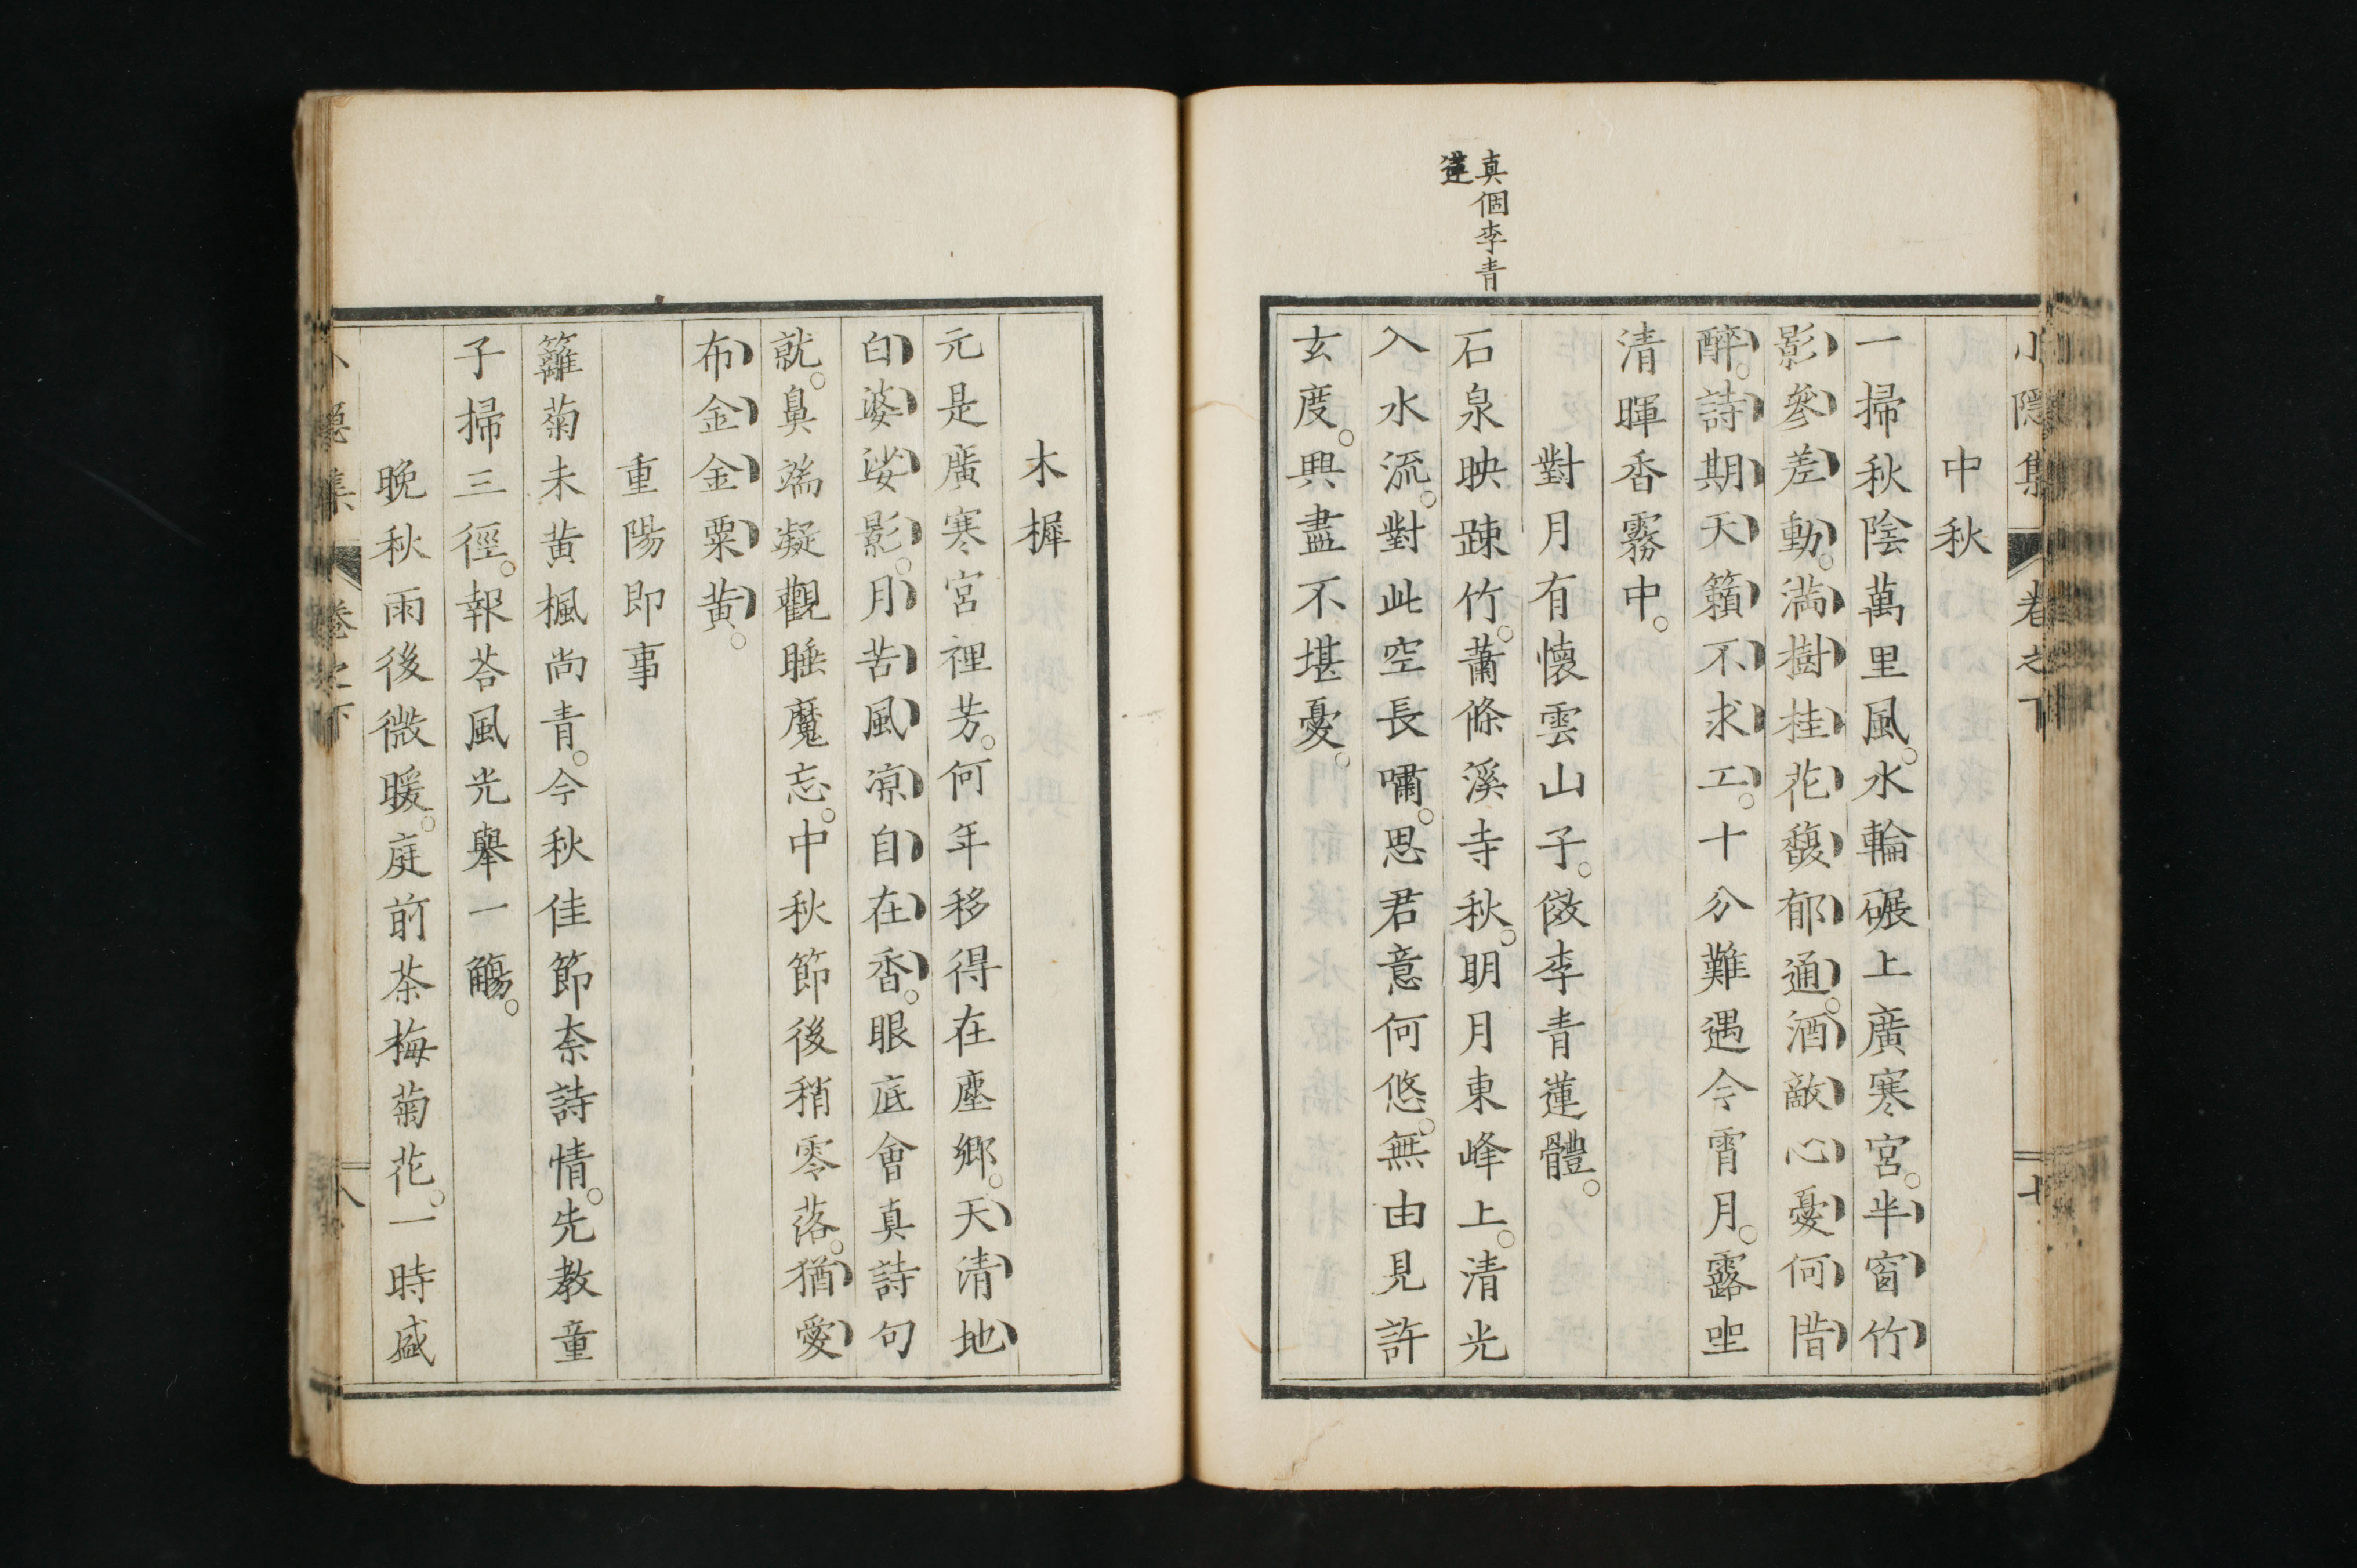 小隱集 卷之下 七
中秋
一掃秋陰萬里風。水輪碾上廣寒宮。半窗竹
影參差動。滿樹桂花馥郁通。酒敵心憂何惜
醉。詩期天籟不求工。十分難遇今宵月。露坐
清暉香霧中。
對月有懷雲山子。傚李青蓮體。
真個李青
蓮
石泉映踈竹。蕭條溪寺秋。明月東峰上。清光
入水流。對此空長嘯。思君意何悠。無由見許
玄度。興盡不堪憂。
木樨
元是廣寒宮裡芳。何年移得在塵鄉。天清地
白婆娑影。月苦風凉自在香。眼底會真詩句
就。鼻端凝觀睡魔忘。中秋節後稍零落。猶愛
布金金粟黃。
重陽即事
籬菊未黃楓尚青。今秋佳節奈詩情。先教童
子掃三徑。報荅風光舉一觴。
晚秋雨後微暖。庭前茶梅菊花。一時盛
小隱集 卷之下 八